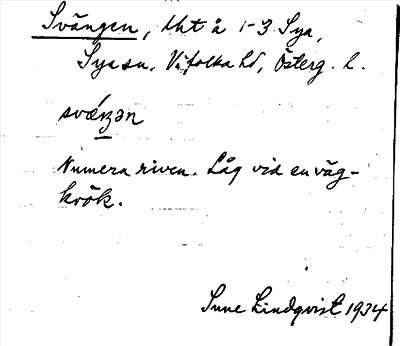 Svängen, tht å 1-3 Sya,
Sya sn. Vifolka hd, Österg. l.
svǽŋən
Numera riven. Låg vid en väg-
krök.
Sune Lindqvist 1934